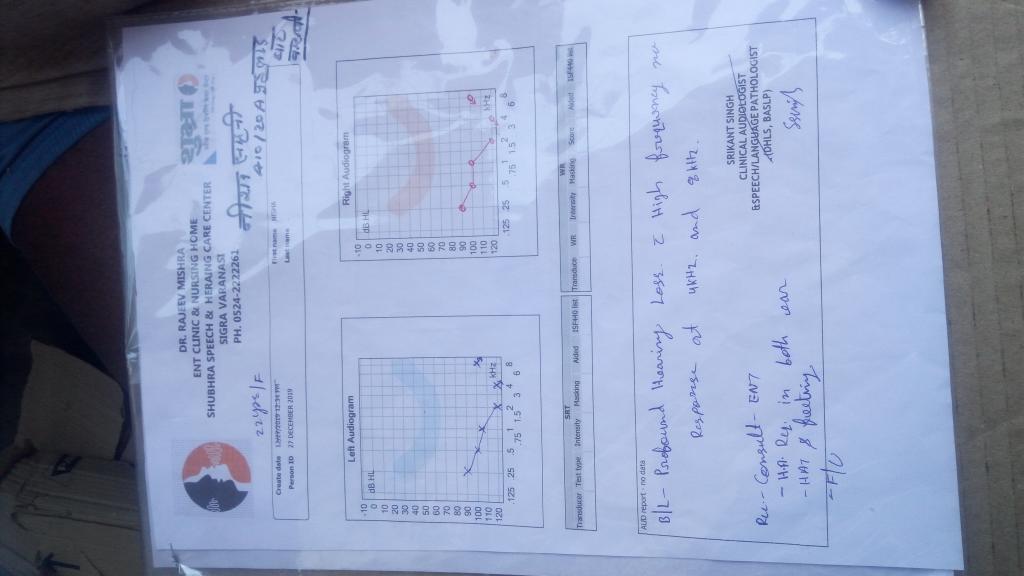 DR. RAJEEV MISHRA
ENT CLINIC & NURSING HOME
SHUBHRA SPEECH & HERAING CARE CENTER
SIGRA VARANASI
PH. 0524-2222261
शुभ्रा
22 yrs/F
410/20A
Create date
Person ID 27 DECEMBER 2019
First name
Last name
Left Audiogram
dB HL
-10
0
10
20
30
40
50
60
70
80
90
100
110
120
kHz
.125 .25 .5 .75 1 1.5 2 3 4 6 8
Right Audiogram
dB HL
-10
0
10
20
30
40
50
60
70
80
90
100
110
120
kHz
.125 .25 .5 .75 1 1.5 2 3 4 6 8
SRT
Transducer Test type Intensity Masking Aided
WR
Transduce WR Intensity Masking Score Aided
AUD report - no data
B/L - Profound Hearing Loss c High frequency no
Response at 4kHz. and 8kHz.
Rec:- Consult - ENT
- HA Req in both ear
- HAT & fitting
- F/U
SRIKANT SINGH
CLINICAL AUDIOLOGIST
&SPEECH/LANGUAGE PATHOLOGIST
(DHLS, BASLP)